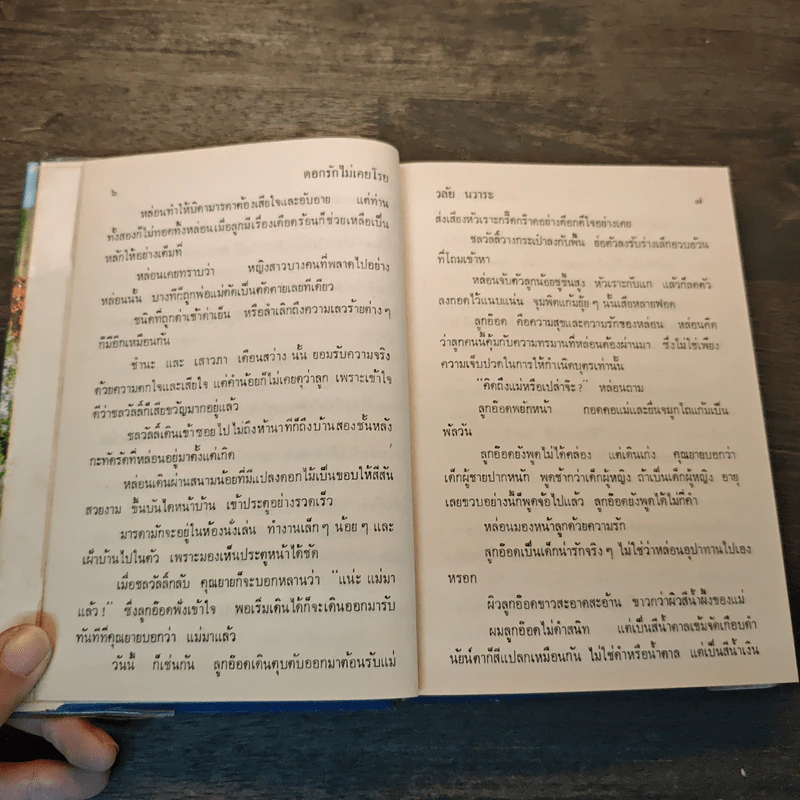 ๖
ดอกรักไม่เคยโรย
หล่อนทำให้บิดามารดาต้องเสียใจและอับอาย แต่ท่าน
ทั้งสองก็ไม่ทอดทิ้งหล่อนเมื่อลูกมีเรื่องเดือดร้อนก็ช่วยเหลือเป็น
หลักให้อย่างเต็มที่
หล่อนเคยทราบว่า หญิงสาวบางคนที่พลาดไปอย่าง
หล่อนนั้น บางทีก็ถูกพ่อแม่ตัดเป็นตัดตายเลยทีเดียว
ชนิดที่ถูกด่าเช้าด่าเย็น หรือลำเลิกถึงความเลวร้ายต่างๆ
ก็มีอีกเหมือนกัน
ชำนะ และ เสาวภา เดือนสว่าง นั้น ยอมรับความจริง
ด้วยความตกใจและเสียใจ แต่คำน้อยก็ไม่เคยดุว่าลูก เพราะเข้าใจ
ดีว่าชลวัลลิ์ก็เสียขวัญมากอยู่แล้ว
ชลวัลลิ์เดินเข้าซอยไป ไม่ถึงห้านาทีก็ถึงบ้านสองชั้นหลัง
กะทัดรัดที่หล่อนอยู่มาตั้งแต่เกิด
หล่อนเดินผ่านสนามน้อยที่มีแปลงดอกไม้เป็นขอบให้สีสัน
สวยงาม ขึ้นบันไดหน้าบ้าน เข้าประตูอย่างรวดเร็ว
มารดามักจะอยู่ในห้องนั่งเล่น ทำงานเล็กๆ น้อยๆ และ
เฝ้าบ้านไปในตัว เพราะมองเห็นประตูหน้าได้ชัด
เมื่อชลวัลลิ์กลับ คุณยายก็จะบอกหลานว่า "แน่ะ แม่มา
แล้ว!" ซึ่งลูกอ๊อดฟังเข้าใจ พอเริ่มเดินได้ก็จะเดินออกมารับ
ทันทีที่คุณยายบอกว่า แม่มาแล้ว
วันนี้ ก็เช่นกัน ลูกอ๊อดเดินตุบตับออกมาต้อนรับแม่
วลัย นวาระ
๗
ส่งเสียงหัวเราะกรี๊ดกร๊าดอย่างดีอกดีใจอย่างเคย
ชลวัลลิ์วางกระเป๋าลงกับพื้น ย่อตัวลงรับร่างเล็กอวบอ้วน
ที่โถมเข้าหา
หล่อนจับตัวลูกน้อยชูขึ้นสูง หัวเราะกับแก แล้วก็ลดตัว
ลงกอดไว้แนบแน่น จุมพิตแก้มยุ้ยๆ นั้นเสียหลายฟอด
ลูกอ๊อด คือความสุขและความรักของหล่อน หล่อนคิด
ว่าลูกคนนี้คุ้มกับความทรมานที่หล่อนต้องผ่านมา ซึ่งไม่ใช่เพียง
ความเจ็บปวดในการให้กำเนิดบุตรเท่านั้น
"คิดถึงแม่หรือเปล่าจ๊ะ?" หล่อนถาม
ลูกอ๊อดพยักหน้า กอดคอแม่และยื่นจมูกไถแก้มเป็น
พัลวัน
ลูกอ๊อดยังพูดไม่ได้คล่อง แต่เดินเก่ง คุณยายบอกว่า
เด็กผู้ชายปากหนัก พูดช้ากว่าเด็กผู้หญิง ถ้าเป็นเด็กผู้หญิง อายุ
เลยขวบอย่างนี้ก็พูดจ้อไปแล้ว ลูกอ๊อดยังพูดได้ไม่กี่คำ
หล่อนมองหน้าลูกด้วยความรัก
ลูกอ๊อดเป็นเด็กน่ารักจริงๆ ไม่ใช่ว่าหล่อนอุปาทานไปเอง
หรอก
ผิวลูกอ๊อดขาวสะอาดสะอ้าน ขาวกว่าผิวสีน้ำผึ้งของแม่
ผมลูกอ๊อดไม่ดำสนิท แต่เป็นสีน้ำตาลเข้มจัดเกือบดำ
นัยน์ตาก็สีแปลกเหมือนกัน ไม่ใช่ดำหรือน้ำตาล แต่เป็นสีน้ำเงิน